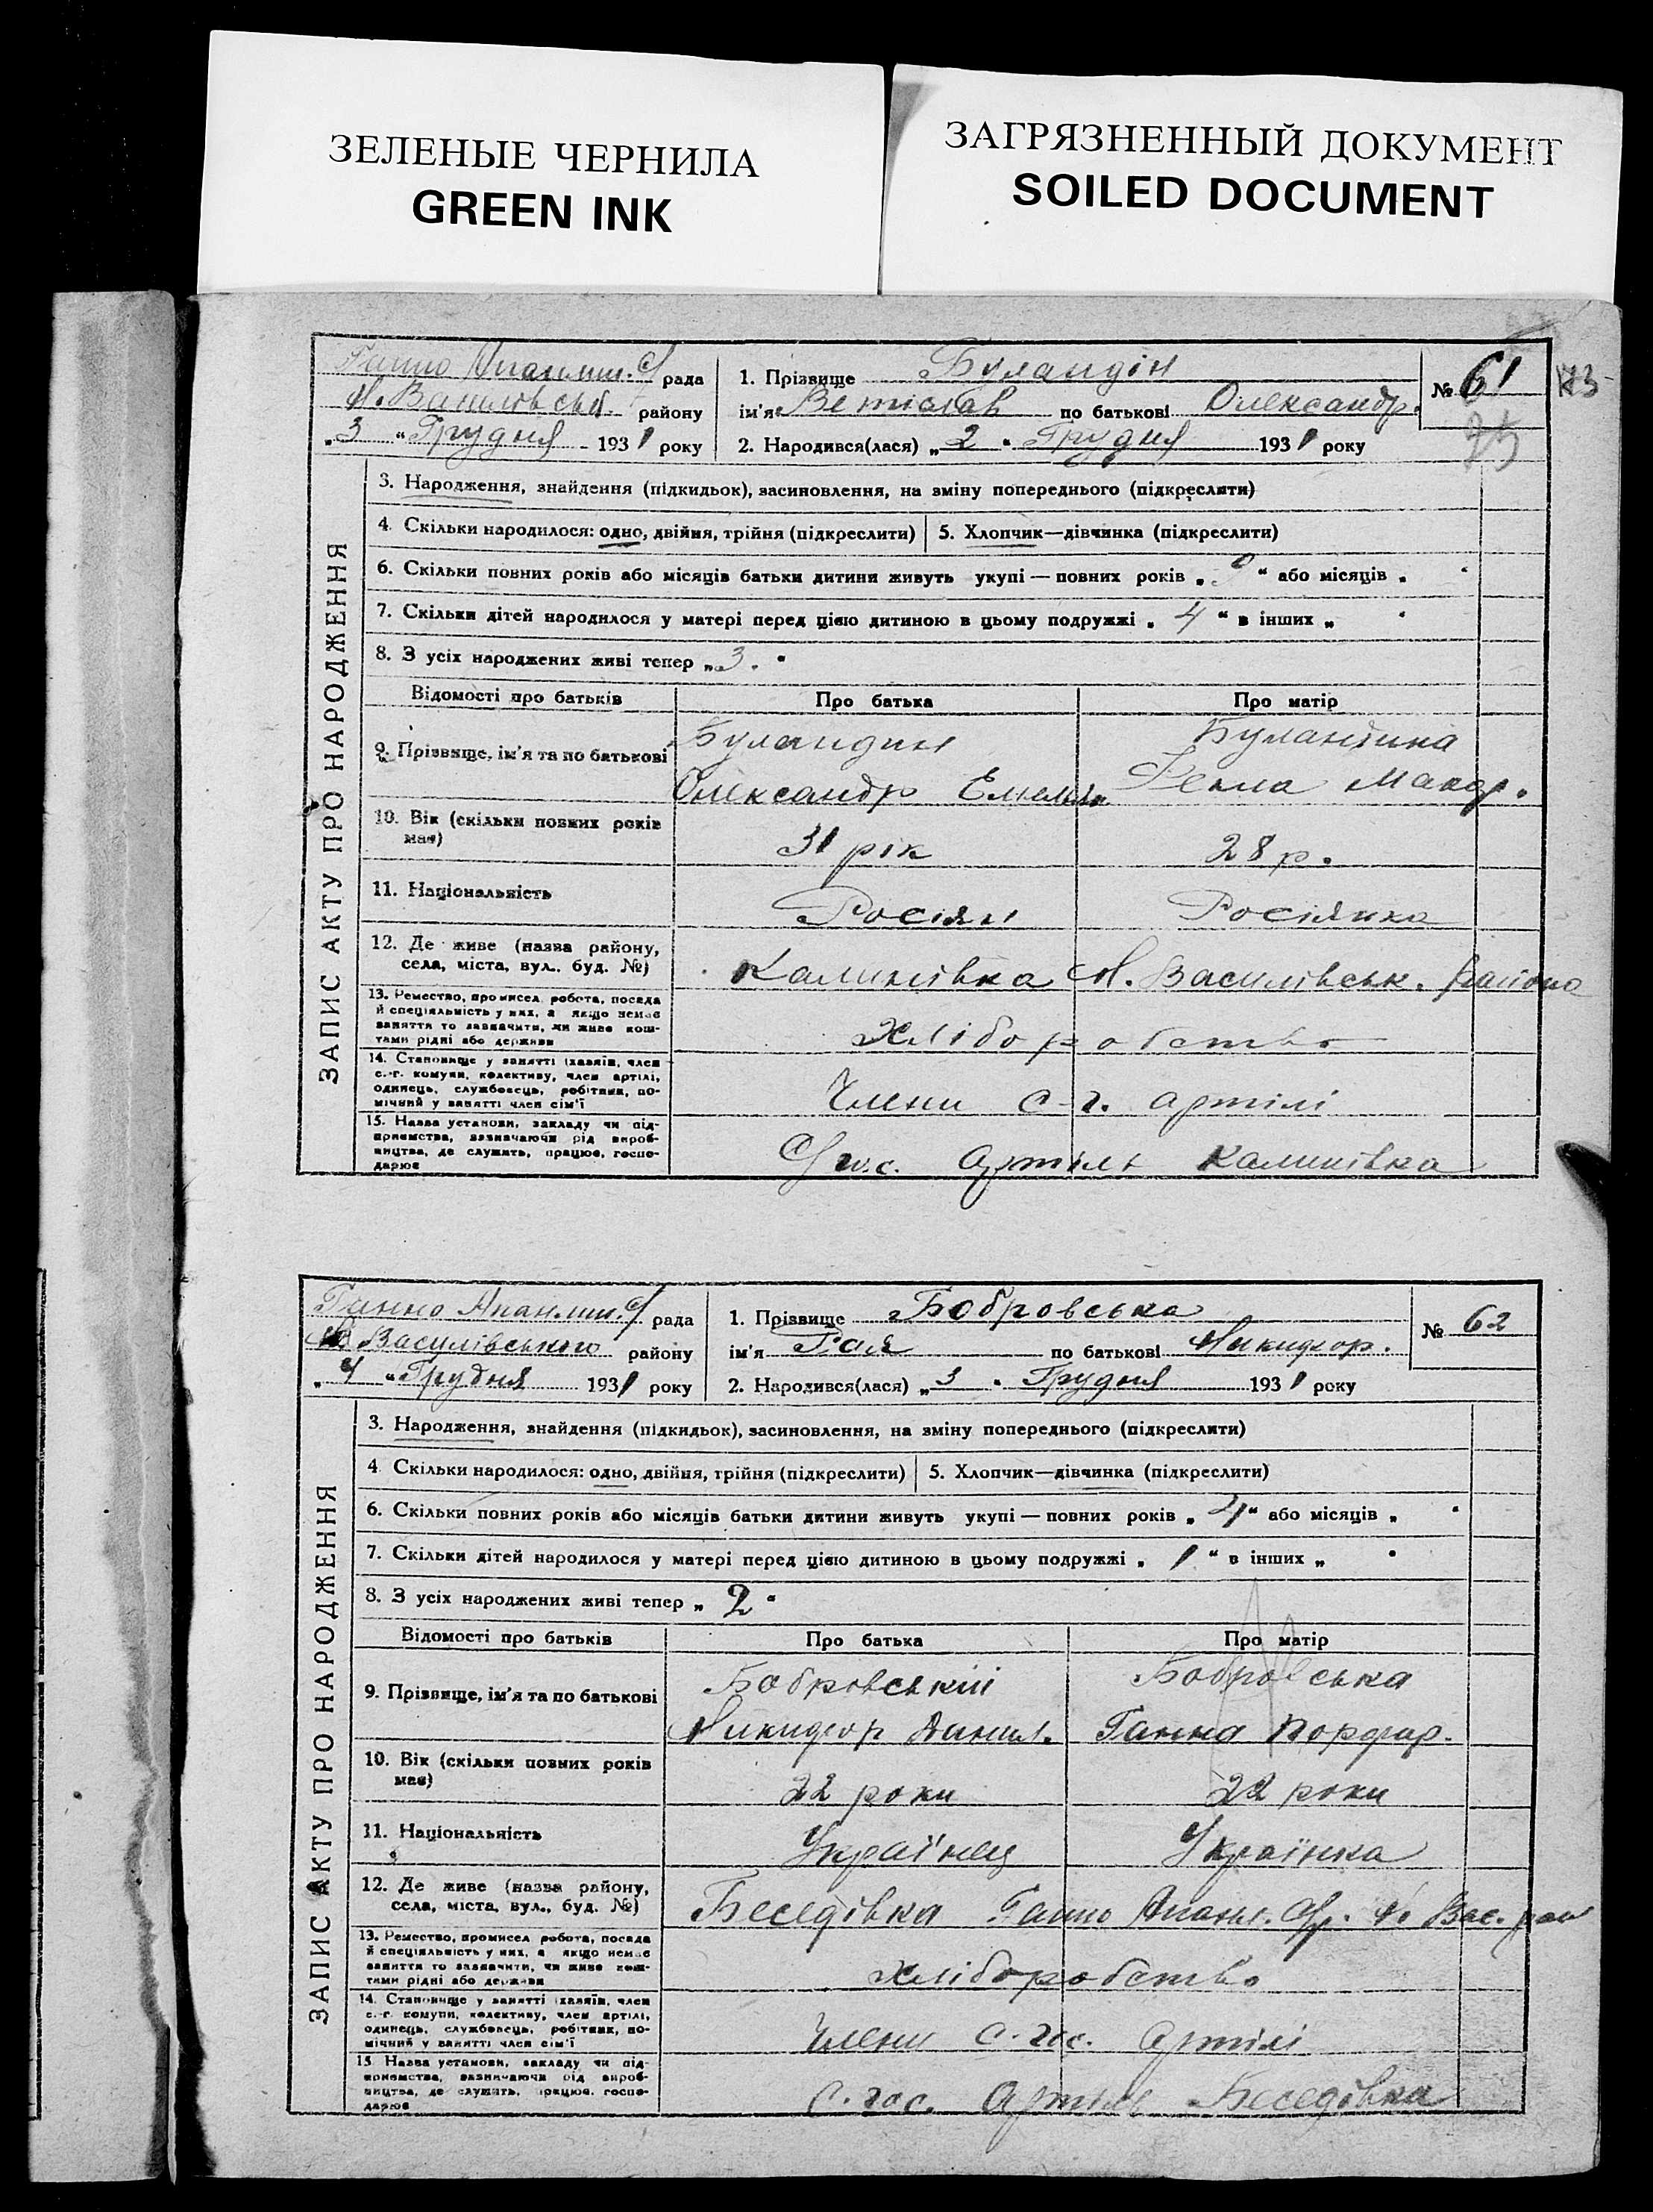 ЗЕЛЕНЫЕ ЧЕРНИЛА
GREEN INK
ЗАГРЯЗНЕННЫЙ ДОКУМЕНТ
SOILED DOCUMENT
рада
району
„3“ Грудня 1931 року
1. Прізвище Буландін
ім'я по батькові Олександр.
2. Народився(лася) „2“ Грудня 1931 року
№ 61
ЗАПИС АКТУ ПРО НАРОДЖЕННЯ
3. Народження, знайдення (підкидьок), засиновлення, на зміну попереднього (підкреслити)
4. Скільки народилося: одно, двійня, трійня (підкреслити)
5. Хлопчик—дівчинка (підкреслити)
6. Скільки повних років або місяців батьки дитини живуть укупі — повних років „ “ або місяців „ “
7. Скільки дітей народилося у матері перед цією дитиною в цьому подружжі „4“ в інших „ “
8. З усіх народжених живі тепер „3“
Відомості про батьків
Про батька
Про матір
9. Прізвище, ім'я та по батькові
Буландин
Олександр Емельян
Буландина
Текла Макар.
10. Вік (скільки повних років
має)
31 рік
28 р.
11. Національність
Росіян
Росіянка
12. Де живе (назва району,
села, міста, вул.. буд. №)
Калинівка Н. Василівськ. района
13. Ремество, промисел, робота, посада
й спеціяльність у них, а якщо немає
заняття то зазначити, чи живе кош-
тами рідні або держави
Хліборобство
14. Становище у занятті (хазяїн, член
с.-г. комуни, колективу, член артілі,
одинець, службовець, робітник, по-
мічний у занятті член сім'ї
Члени с-г. артілі
15. Назва установи, закладу чи під-
приємства, зазначаючи рід вироб-
ництва, де служить, працює, госпо-
дарює
С/гос. Артіль Калинівка
Ганно рада
Василівського району
„4“ Грудня 1931 року
1. Прізвище Бобровська
ім'я Рая по батькові Никифор.
2. Народився(лася) „3“ Грудня 1931 року
№ 62
ЗАПИС АКТУ ПРО НАРОДЖЕННЯ
3. Народження, знайдення (підкидьок), засиновлення, на зміну попереднього (підкреслити)
4. Скільки народилося: одно, двійня, трійня (підкреслити)
5. Хлопчик—дівчинка (підкреслити)
6. Скільки повних років або місяців батьки дитини живуть укупі — повних років „4“ або місяців „ “
7. Скільки дітей народилося у матері перед цією дитиною в цьому подружжі „1“ в інших „ “
8. З усіх народжених живі тепер „2“
Відомості про батьків
Про батька
Про матір
9. Прізвище, ім'я та по батькові
Бобровській
Никифор Данил.
Бобровська
Ганна Порфир.
10. Вік (скільки повних років
має)
22 роки
22 роки
11. Національність
Українец
Українка
12. Де живе (назва району,
села, міста, вул., буд. №)
Беседівка Ганно
13. Ремество, промисел робота, посада
й спеціяльність у них, а якщо немає
заняття то зазначити, чи живе кош-
тами рідні або держави
Хліборобство
14. Становище у занятті (хазяїн, член
с.-г. комуни, колективу, член артілі,
одинець, службовець, робітник, по-
мічний у занятті член сім'ї
Члени с.-гос. Артілі
15. Назва установи, закладу чи під-
приємства, зазначаючи рід вироб-
ництва, де служить, працює, госпо-
дарює
С.-гос. Артіль Беседівка